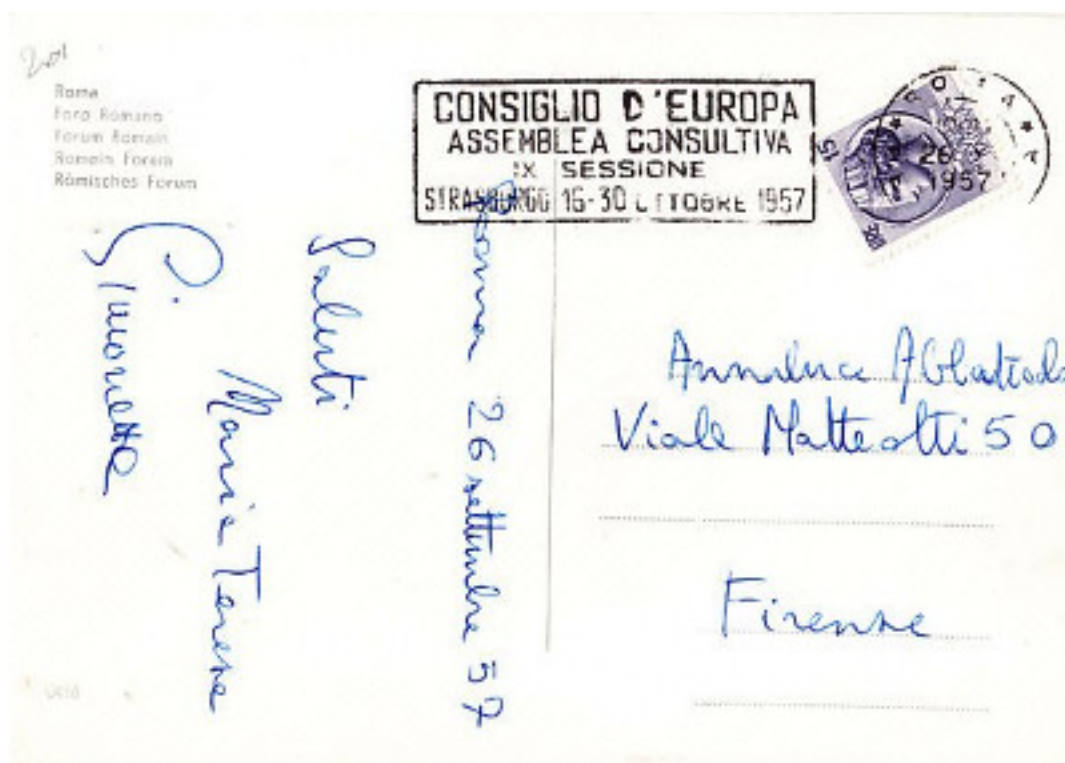 201
Roma
Foro Romano
Forum Romain
Römisches Forum
CONSIGLIO D'EUROPA
ASSEMBLEA CONSULTIVA
IX SESSIONE
STRASBURGO 16-30 OTTOBRE 1957
26
1957
Roma 26 settembre 57
Saluti
Maria Teresa
Simonetta
Viale Matteotti 50
Firenze